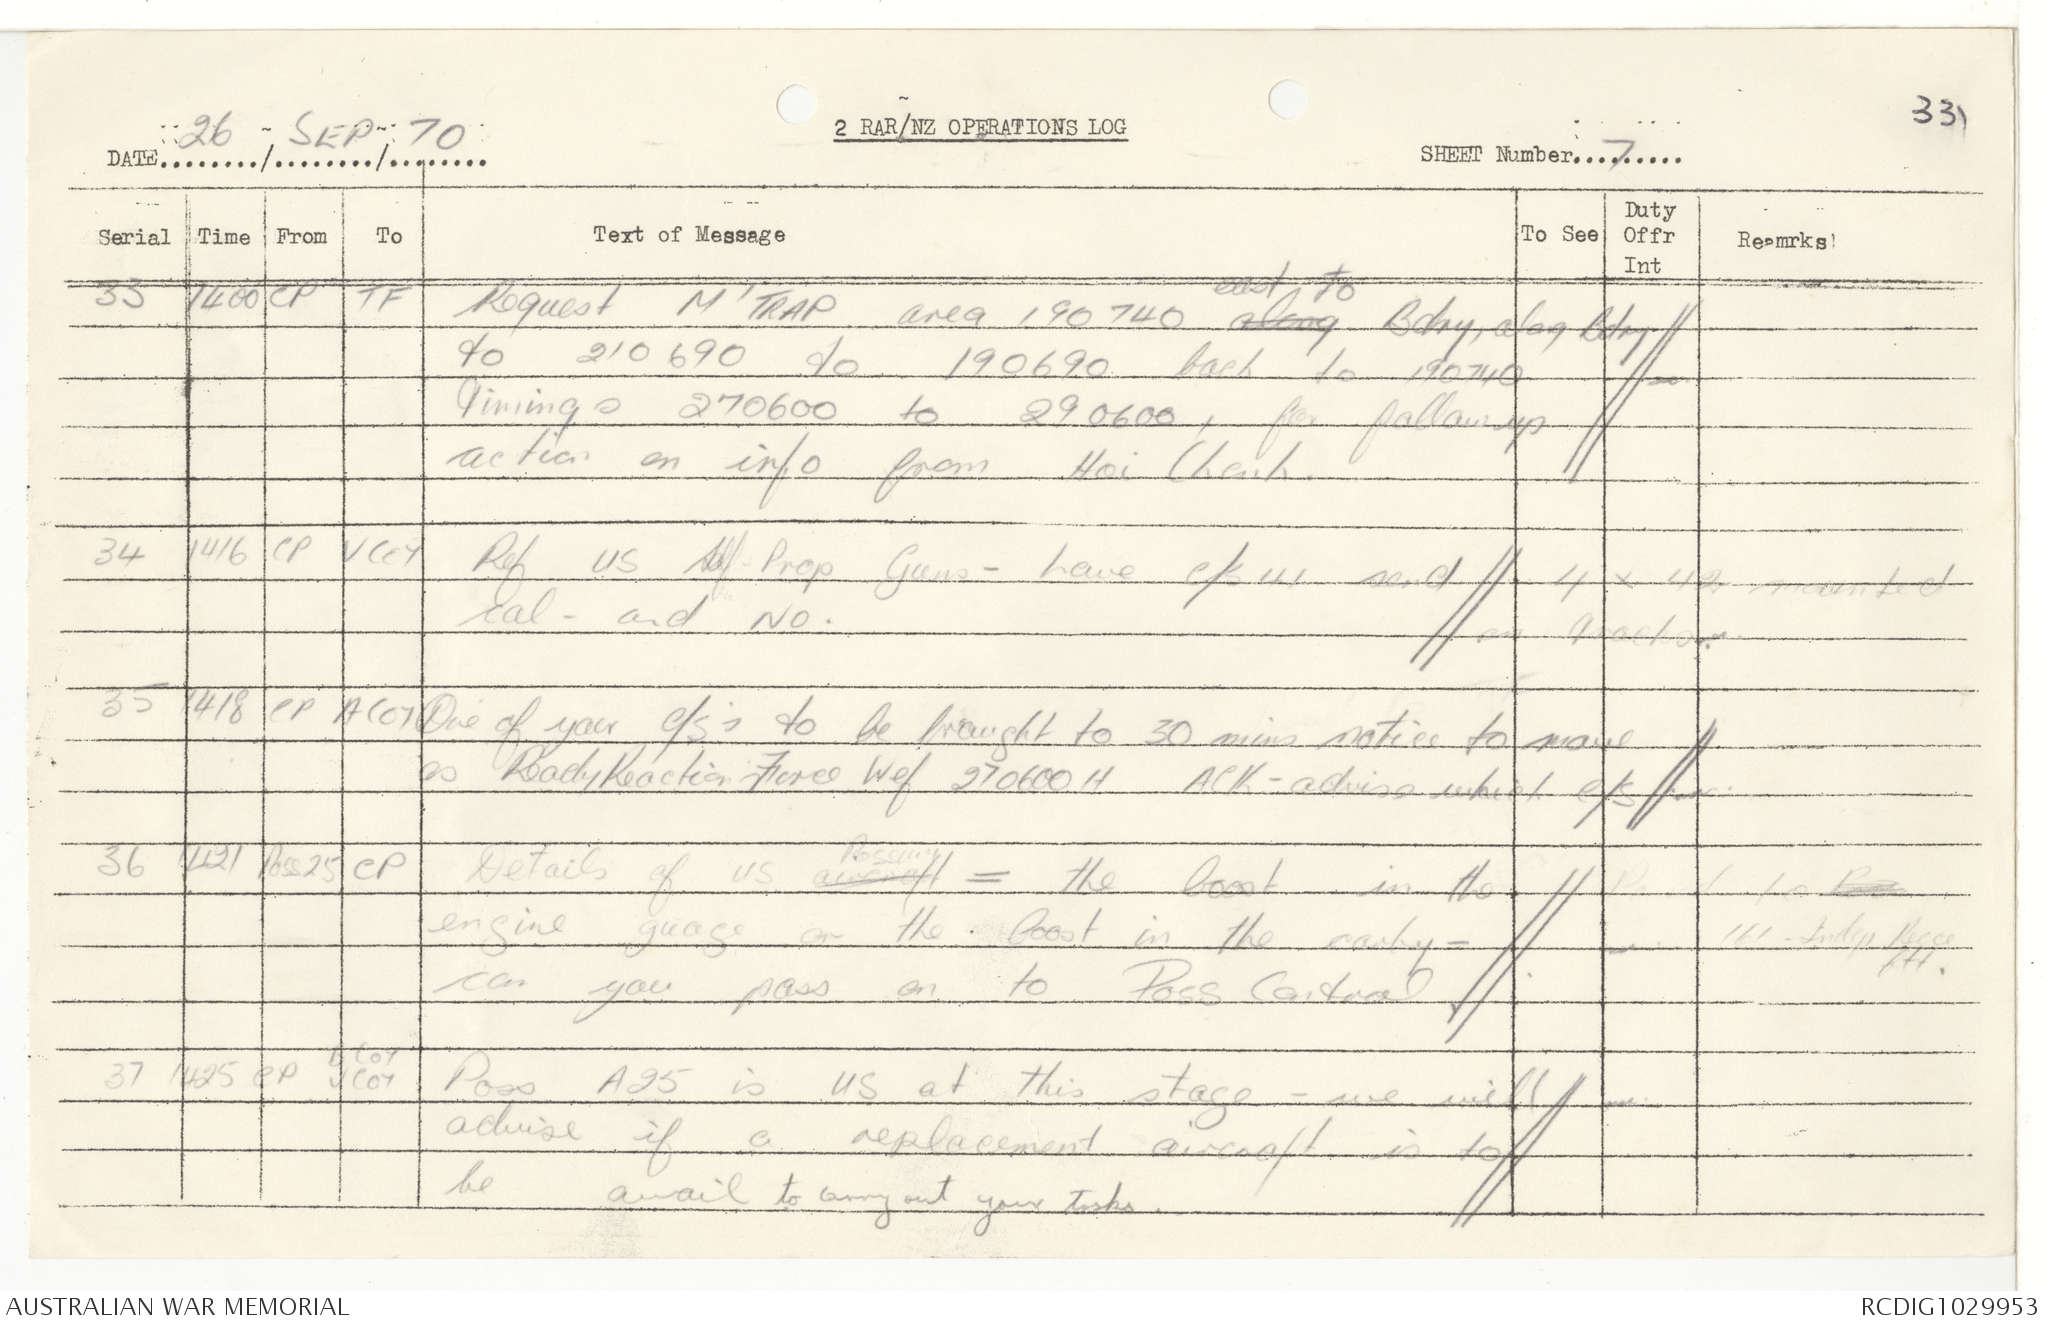 331
26 SEP 70
2 RAR/NZ OPERATIONS LOG
DATE......../......../........
SHEET Number....7.....
Serial Time From To Text of Message To See Duty Offr Int Remrks!
33 1400 CP TF Request M'TRAP area 190740 along east to Bdry, along Bdry
to 210690 to 190690 back to 190740
Timings 270600 to 290600, for follow up
action on info from Hoi Chanh.
34 1416 CP V COY Ref US Self-Prop Guns - have c/s send 4 x 42 mounted
cal - and No. on tractor.
35 1418 CP A COY One of your c/s's to be brought to 30 mins notice to move
as Ready Reaction Force Wef 270600H ACK - advise which c/s
36 1421 Poss25 CP Details of US aircraft Possum = the boost in the to
engine guage or the boost in the = 161 - Indep Recce
can you pass on to Poss Control Flt.
37 1425 CP V COY Poss A25 is US at this stage - we will
advise if a replacement aircraft is to
be avail to carry out your tasks.
AUSTRALIAN WAR MEMORIAL
RCDIG1029953